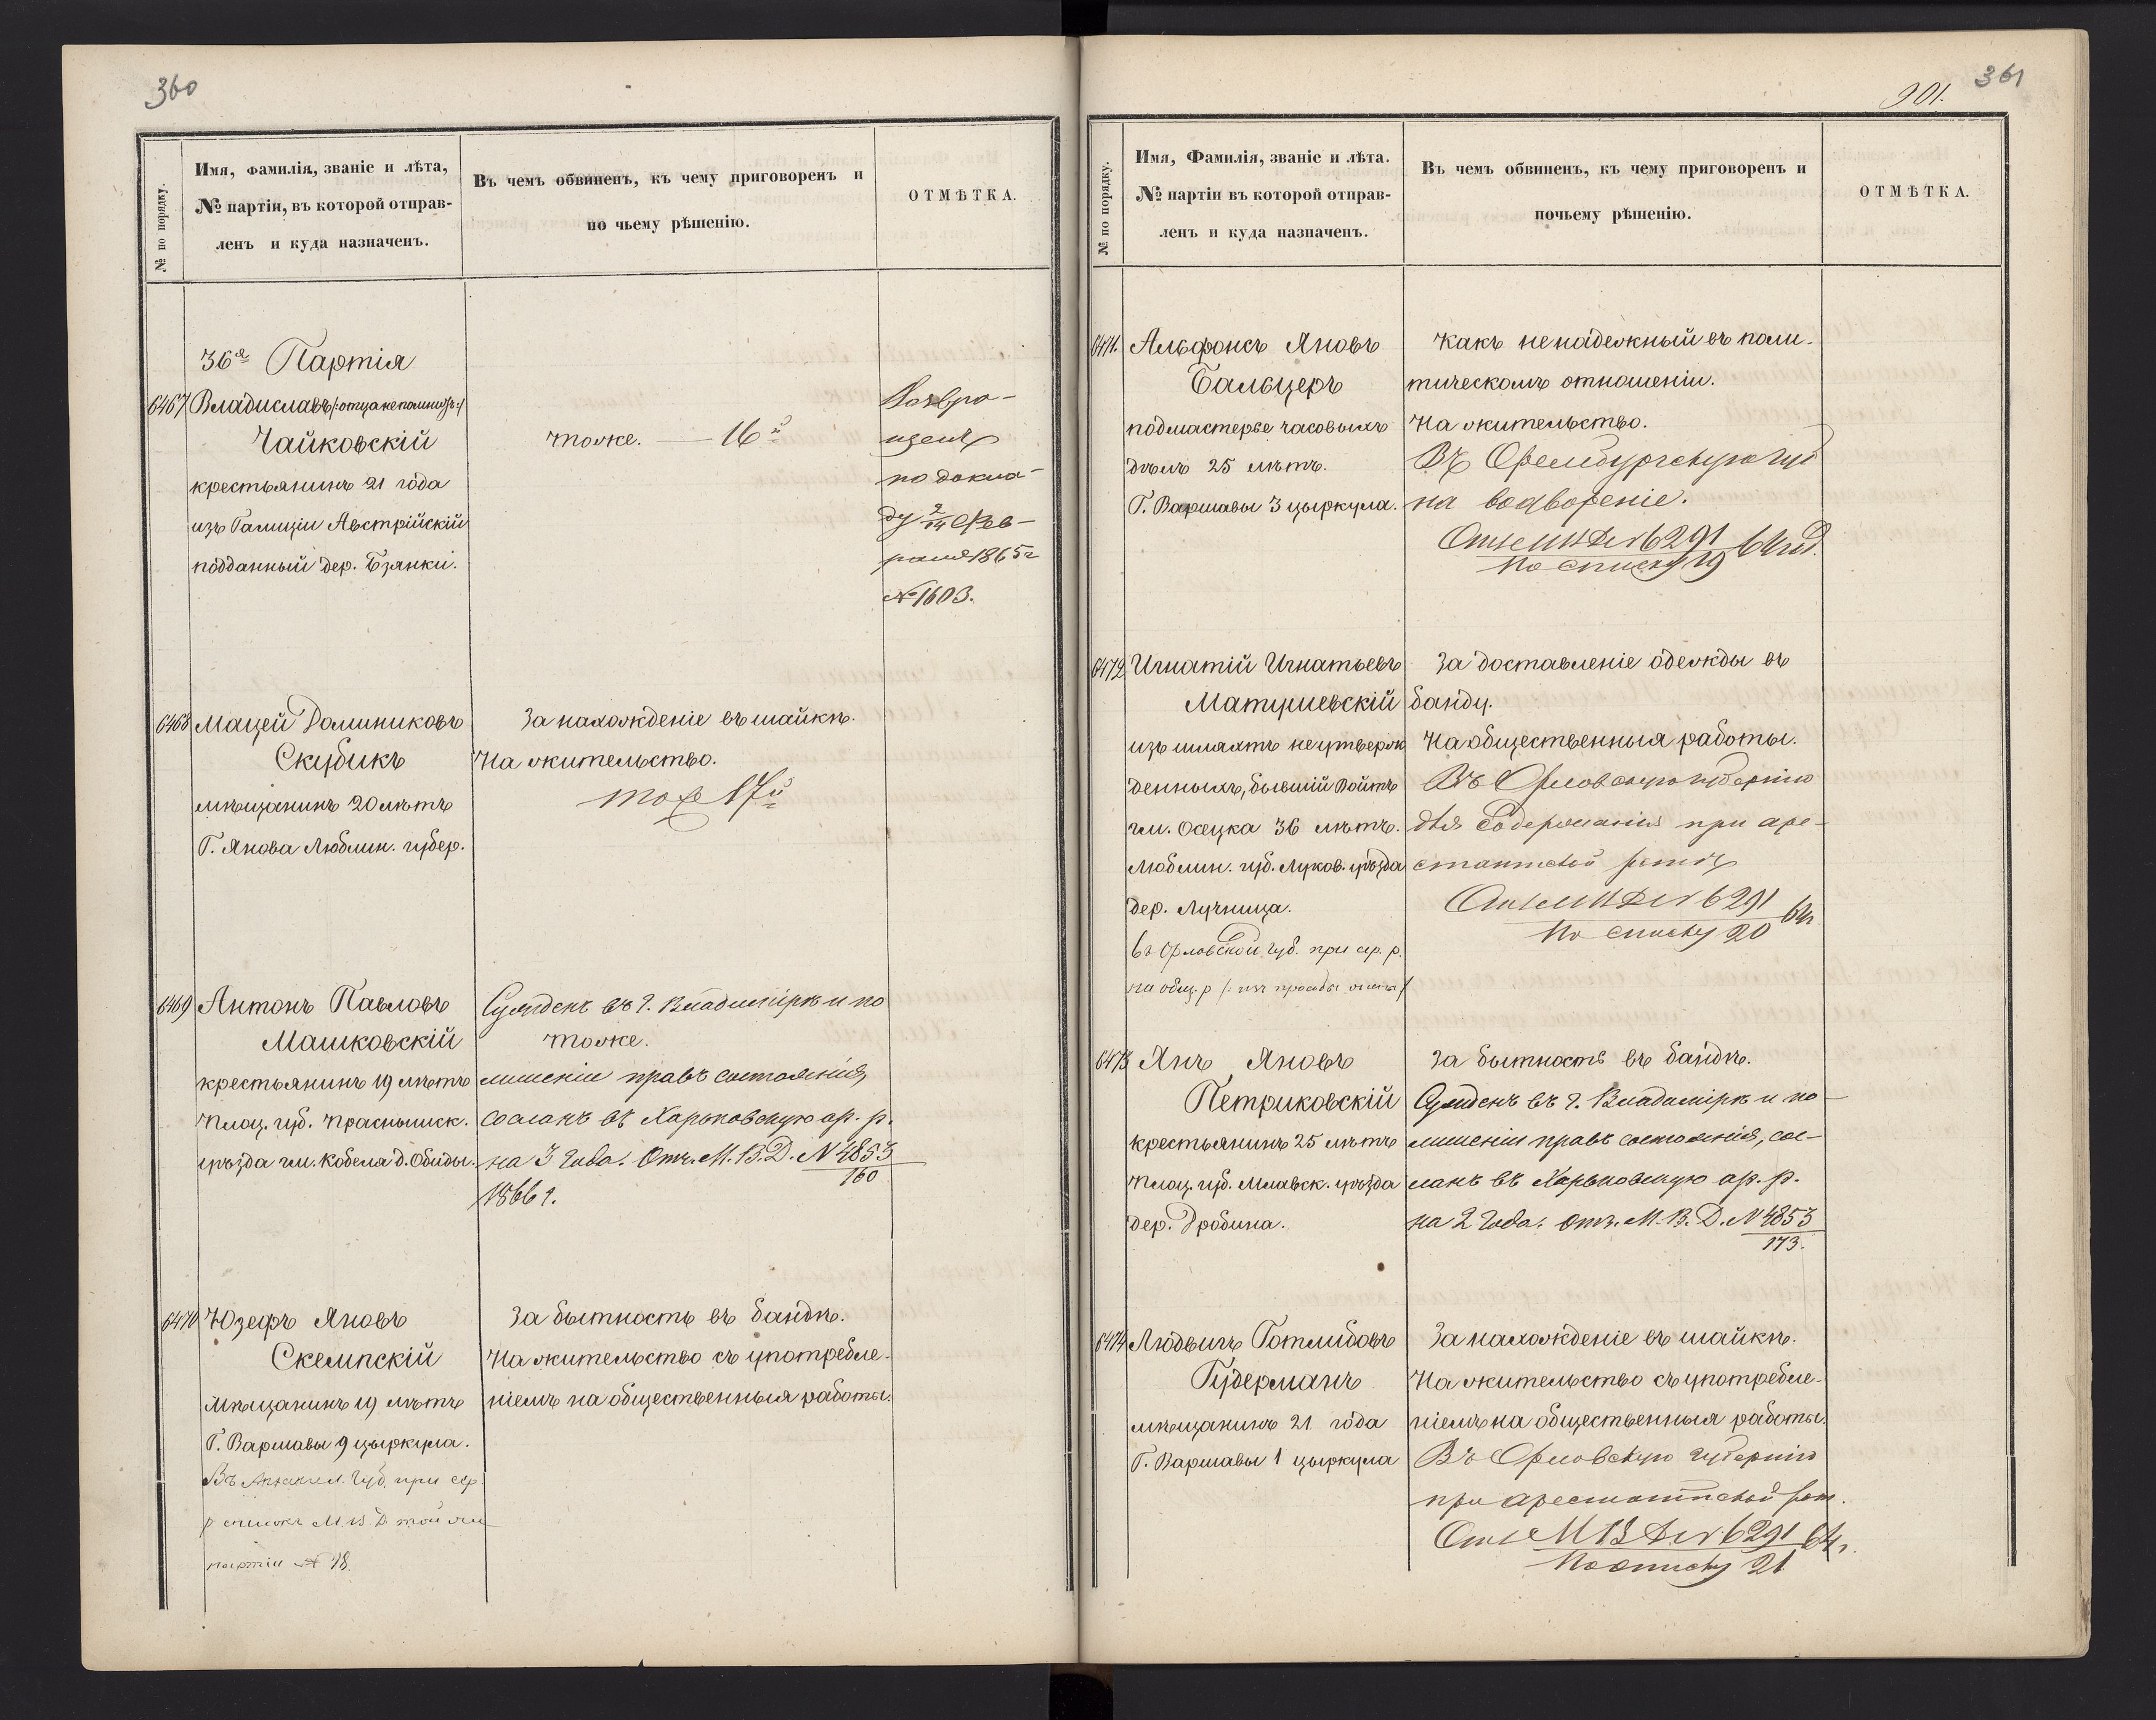 360
№ по порядку.
Имя, Фамилія, званіе и лѣта,
№ партіи, въ которой отправ-
ленъ и куда назначенъ.
Въ чемъ обвиненъ, къ чему приговоренъ и
по чьему рѣшенію.
ОТМѢТКА.
36я Партія
6467 Владиславъ /:отца не помнитъ:/
Чайковскій
крестьянинъ 21 года
изъ Галиціи Австрійскій
подданный дер. Бзянки.
тоже. — 16й
Возвра-
щенъ
по докла-
ду 2/III Фев-
раля 1865 г
№ 1603.
6468 Мацей Доминиковъ
Скубикъ
мѣщанинъ 20 лѣтъ
Г. Янова Люблин. губер.
За нахожденіе въ шайкѣ.
На жительство.
тоже 17й
6469 Антонъ Павловъ
Машковскій
крестьянинъ 19 лѣтъ
Плоц. губ. Праснышск.
уѣзда гм. Кобеля д. Обиды.
Сужденъ въ г. Владимірѣ и по
тоже.
лишеніи правъ состоянія,
сосланъ въ Харьковскую ар. р.
на 3 года. Отн. М. В. Д. № 4853
160
1866 г.
6470 Юзефъ Яновъ
Скемпскій
мѣщанинъ 19 лѣтъ
Г. Варшавы 9 цыркула.
Въ Архангел. Губ. при ар.
р списокъ М. В. Д. той же
партіи № 18.
За бытность въ бандѣ.
На жительство съ употребле-
ніемъ на общественныя работы.
361
901.
№ по порядку.
Имя, Фамилія, званіе и лѣта.
№ партіи въ которой отправ-
ленъ и куда назначенъ.
Въ чемъ обвиненъ, къ чему приговоренъ и
почьему рѣшенію.
ОТМѢТКА.
6471. Альфонсъ Яновъ
Бальцеръ
подмастерье часовыхъ
дѣлъ 25 лѣтъ.
Г. Варшавы 3 цыркула.
Какъ ненадежный въ поли-
тическомъ отношеніи.
На жительство.
Въ Оренбургскую губ
на водвореніе.
Отн МВД № 6291 64 год.
По списку 19
6472 Игнатій Игнатьевъ
Матушевскій
изъ шляхтъ неутверж
денныхъ, бывшій Войтъ
гм. Осецка 36 лѣтъ.
Люблин. губ. Луков. уѣзда
дер. Лучница.
въ Орловской губ. при ар. р.
на общ. р
За доставленіе одежды въ
банду.
На общественныя работы.
Въ Орловскую губернію
для содержанія при аре-
стантской ротѣ
Отн МВД № 6291 64 г.
По списку 20
6473 Янъ Яновъ
Петриковскій
крестьянинъ 25 лѣтъ
Плоц. губ. Млавск. уѣзда
дер. Дробина.
За бытность въ бандѣ.
Сужденъ въ г. Владимірѣ и по
лишеніи правъ состоянія, сос-
ланъ въ Харьковскую ар. р.
на 2 года. Отн. М. В. Д. № 4853
173.
6474 Людвигъ Готлибовъ
Губерманъ
мѣщанинъ 21 года
Г. Варшавы 1 цыркула
За нахожденіе въ шайкѣ.
На жительство съ употребле-
ніемъ на общественныя работы.
Въ Орловскую губернію
при арестантской рот.
Отн МВД № 6291 64 г.
По списку 21